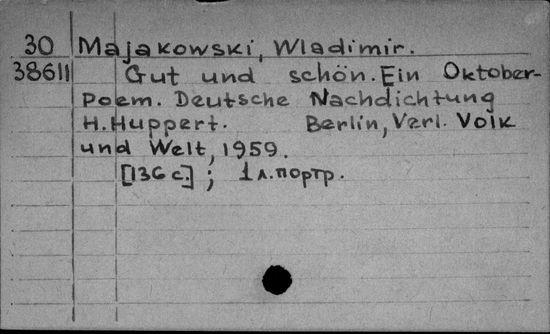 30 Majakowski, Wladimir.
38611 Gut und schön. Ein Oktober-
Poem. Deutsche Nachdichtung
H. Huppert. Berlin, Verl. Volk
und Welt, 1959.
[136 с.] ; 1 л. портр.